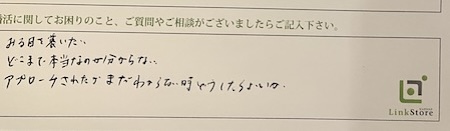 婚活に関してお困りのこと、ご質問やご相談がございましたらご記入下さい。
ある日で暮いた…
どこまで本当なのか分からない
アプローチされたがまだわからない時どうしたらよいか。
LinkStore